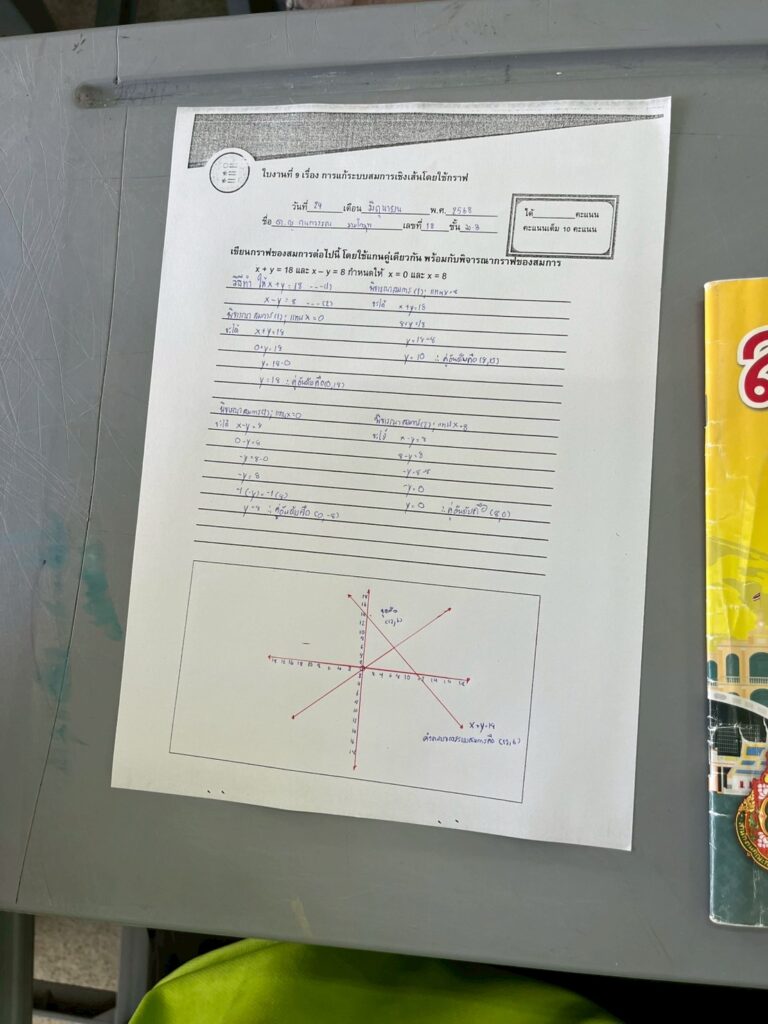 ใบงานที่ 9 เรื่อง การแก้ระบบสมการเชิงเส้นโดยใช้กราฟ
วันที่ 24 เดือน มิถุนายน พ.ศ. 2568
ชื่อ เลขที่ 18 ชั้น ม.3
ได้ คะแนน
คะแนนเต็ม 10 คะแนน
เขียนกราฟของสมการต่อไปนี้ โดยใช้แกนคู่เดียวกัน พร้อมกับพิจารณากราฟของสมการ
x + y = 18 และ x – y = 8 กำหนดให้ x = 0 และ x = 8
วิธีทำ ให้ x+y=18 ---(1)
x-y=8 ---(2)
พิจารณาสมการ(1); แทน x=0
จะได้ x+y=18
0+y=18
y=18-0
y=18 ∴ คู่อันดับคือ(0,18)
พิจารณาสมการ(1); แทน x=8
จะได้ x+y=18
8+y=18
y=18-8
y=10 ∴ คู่อันดับคือ(8,10)
พิจารณาสมการ(2); แทน x=0
จะได้ x-y=8
0-y=8
-y=8-0
-y=8
-1(-y)=-1(8)
y=-8 ∴ คู่อันดับคือ (0,-8)
พิจารณาสมการ(2); แทน x=8
จะได้ x-y=8
8-y=8
-y=8-8
-y=0
y=0 ∴ คู่อันดับคือ (8,0)
จุดตัด
(12,6)
x+y=18
คำตอบของระบบสมการคือ (12,6)